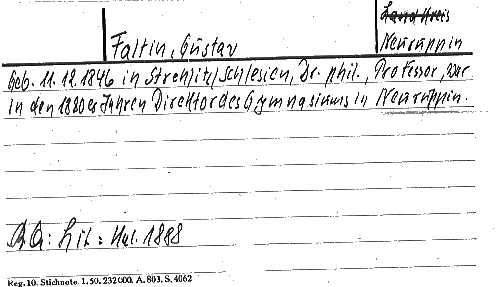 Landkreis
Faltin, Gustav
Neuruppin
Geb. 11.12.1846 in Strehlitz/Schlesien, Dr. phil., Professor, war
in den 1880er Jahren Direktor des Gymnasiums in Neuruppin.
Lit: Kal. 1888
Reg. 10. Stichnote. 1. 50. 232000. A. 803. S. 4062